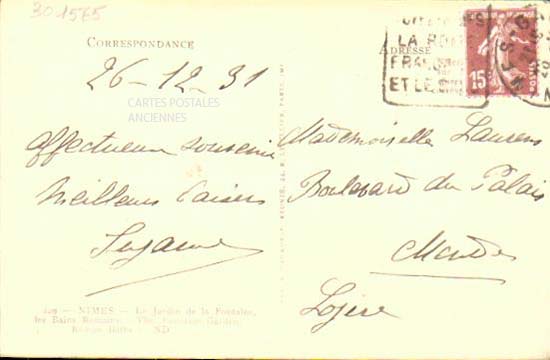 30 1575
CORRESPONDANCE
ADRESSE
LA
FRAN
ET LE
15c
26-12-31
CARTES POSTALES
ANCIENNES
affectueux souvenir
Meilleurs baisers
Suzanne
Mademoiselle Laurens
Boulevard du Palais
Mende
Lozère
— NIMES — Le Jardin de la Fontaine,
les Bains Romains. The Fountain Garden,
Roman Baths — ND